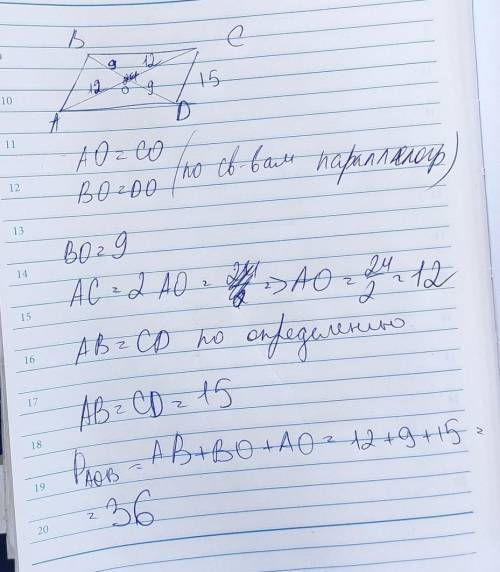 B
C
9 12
12 O 9
15
A
D
10
11
AO = CO
BO = DO (по св-вам параллелогр)
12
13
BO = 9
14
AC = 2 AO = => AO = 24/2 = 12
15
AB = CD по определению
16
17
AB = CD = 15
18
P AOB = AB + BO + AO = 12 + 9 + 15 =
19
= 36
20